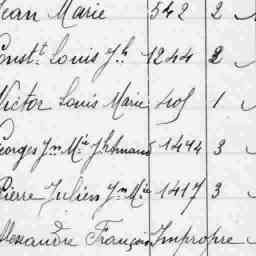 ean Marie 542 2
onst.t Louis Jh 1244 2
Victor Louis Marie 405 1
eorges Jn Mie 1494 3
Pierre Julien Jn Mie 1417 3
Alexandre François Impropre